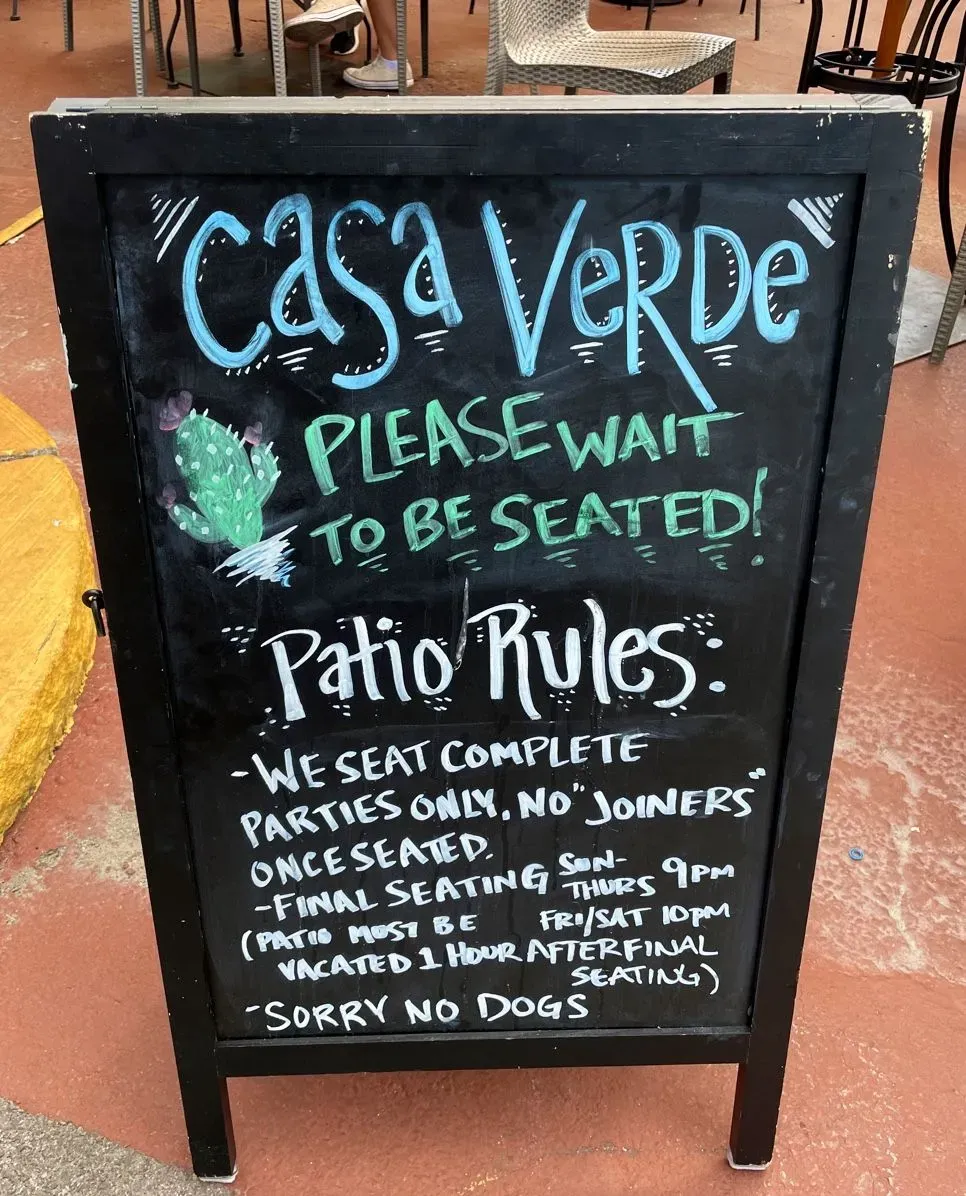 Casa Verde
PLEASE WAIT
TO BE SEATED!
Patio Rules:
-WE SEAT COMPLETE
PARTIES ONLY. NO "JOINERS"
ONCE SEATED.
-FINAL SEATING SUN-THURS 9PM
FRI/SAT 10PM
(PATIO MUST BE
VACATED 1 HOUR AFTER FINAL
SEATING)
-SORRY NO DOGS